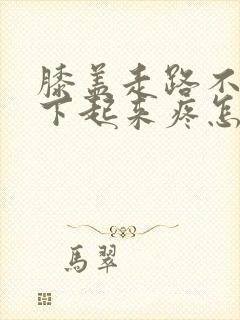 膝盖走路不
下起来疼怎
馬翠